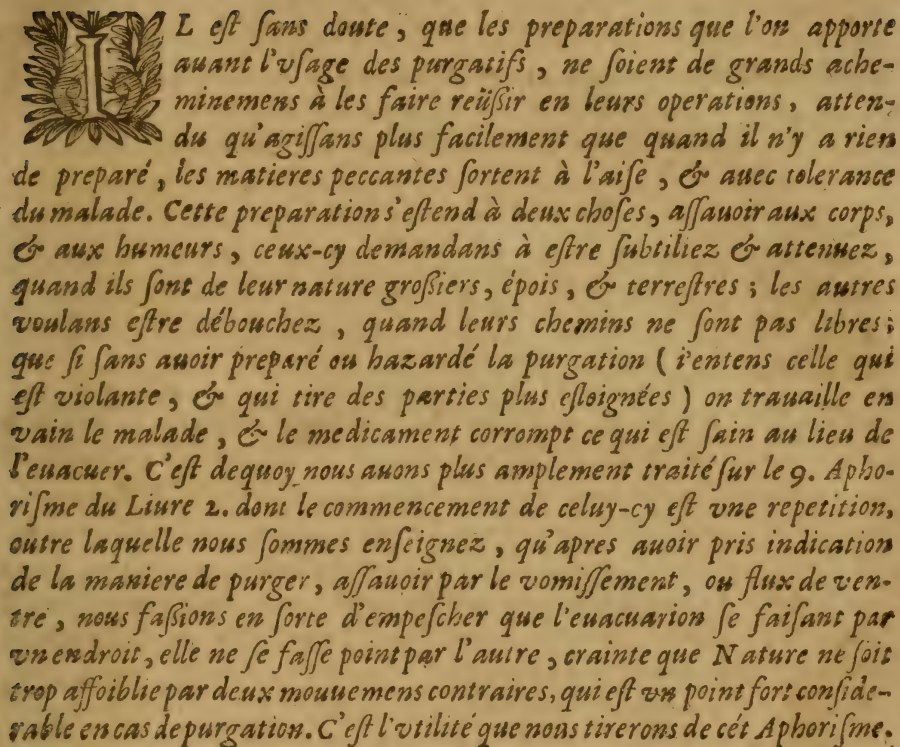 IL eſt ſans doute, que les preparations que l'on apporte
auant l'vſage des purgatifs, ne ſoient de grands ache-
minemens à les faire reüſſir en leurs operations, atten-
du qu'agiſſans plus facilement que quand il n'y a rien
de preparé, les matieres peccantes ſortent à l'aiſe, & auec tolerance
du malade. Cette preparation s'eſtend à deux choſes, aſſauoir aux corps,
& aux humeurs, ceux-cy demandans à eſtre ſubtiliez & attenuez,
quand ils ſont de leur nature groſſiers, épois, & terreſtres; les autres
voulans eſtre débouchez, quand leurs chemins ne ſont pas libres;
que ſi ſans auoir preparé ou hazardé la purgation (i'entens celle qui
eſt violante, & qui tire des parties plus eſloignées) on trauaille en
vain le malade, & le medicament corrompt ce qui eſt ſain au lieu de
l'euacuer. C'eſt dequoy nous auons plus amplement traité ſur le 9. Apho-
riſme du Liure 2. dont le commencement de celuy-cy eſt vne repetition,
outre laquelle nous ſommes enſeignez, qu'apres auoir pris indication
de la maniere de purger, aſſauoir par le vomiſſement, ou flux de ven-
tre, nous faſſions en ſorte d'empeſcher que l'euacuation ſe faiſant par
vn endroit, elle ne ſe faſſe point par l'autre, crainte que Nature ne ſoit
trop affoiblie par deux mouuemens contraires, qui eſt vn point fort conſide-
rable en cas de purgation. C'eſt l'vtilité que nous tirerons de cét Aphoriſme.